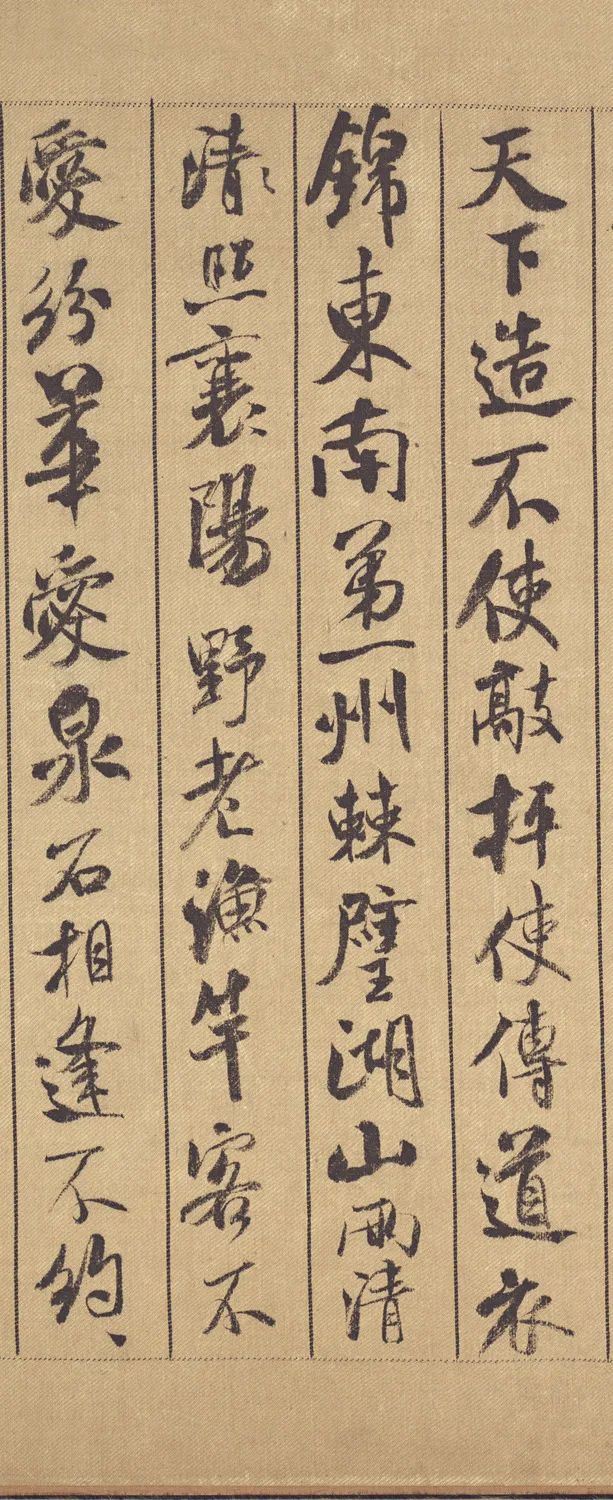 天下造不使敲枰使傳道衣
錦東南第一州棘璧湖山兩清
清照襄陽野老漁竿客不
愛紛華愛泉石相逢不約、